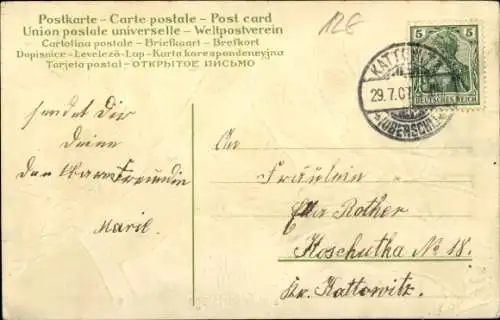 128
Postkarte - Carte postale - Post card
Union postale universelle - Weltpostverein
Cartolina postale - Briefkaart - Brefkort
Dopisnice - Levelező-Lap - Karta korespondencyjna
Tarjeta postal - ОТКРЫТОЕ ПИСЬМО
5 5
DEUTSCHES REICH
KATTOWITZ
29.7.07
(OBERSCHL.)
sendet Dir
Deine
Freundin
Marie.
An
Fräulein
Rother
Koschutka No 18.
Kr. Kattowitz.